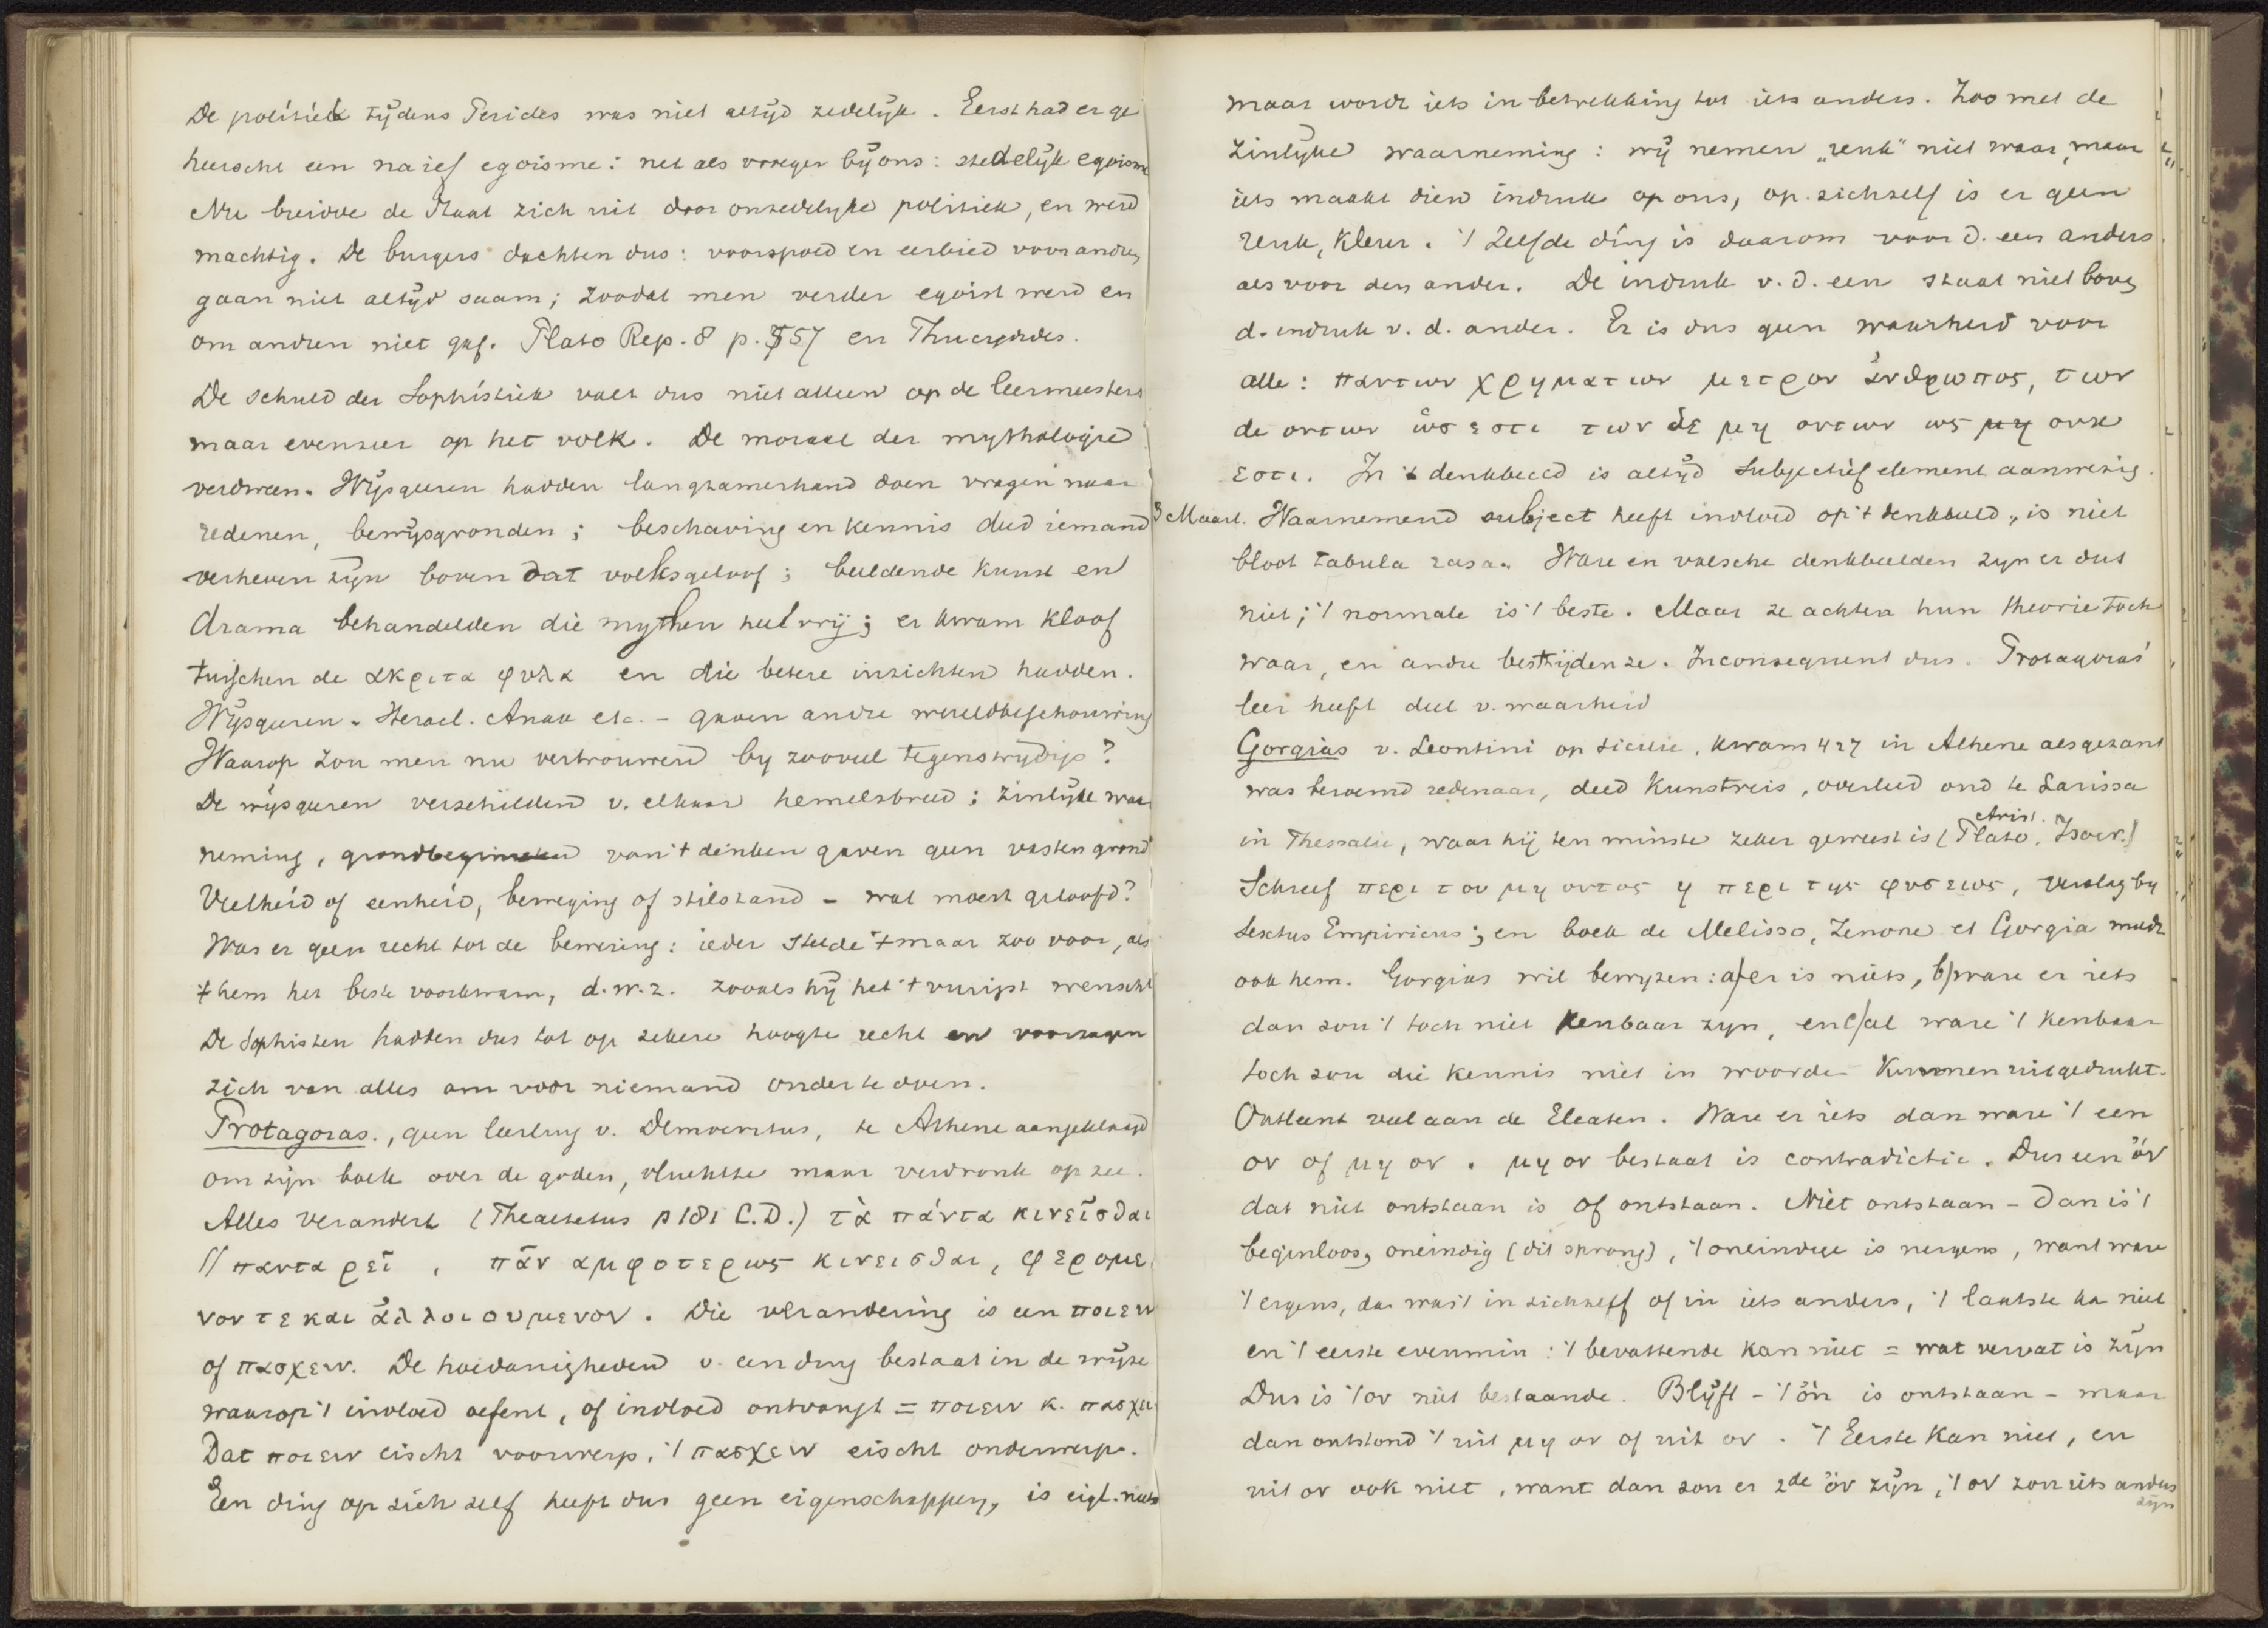 De politiek tijdens Pericles was niet altijd zedelijk. Eerst had er ge
heerscht een naief egoisme: net als vroeger bij ons: stedelijk egoisme
Nu breidde de Staat zich uit door onzedelyke politiek, en werd
machtig. De burgers dachten dus: voorspoed en eerbied voor andren
gaan niet altijd saam; zoodat men verder egoist werd en
om andren niet gaf. Plato Rep. 8 p. 557 en Thucydides.
De schuld der Sophistiek valt dus niet alleen op de leermeesters
maar evenzeer op het volk. De moraal der mythologie
verdween. Wijsgeeren hadden langzamerhand doen vragen naar
redenen, bewijsgronden; beschaving en kennis deed iemand
verheven zijn boven dat volksgeloof; beeldende kunst en
drama behandelden die mythen heel vrij; er kwam kloof
tusschen de ακριτα φυλα en die betere inzichten hadden.
Wijsgeeren - Heracl. Anax etc. - gaven andre wereldbeschouwing
Waarop zou men nu vertrouwen by zooveel tegenstrijdigs?
De wijsgeeren verschilden v. elkaar hemelsbreed: zinlijke waar
neming, grondbeginselen van 't denken gaven geen vasten grond
Veelheid of eenheid, beweging of stilstand - wat moest geloofd?
Was er geen recht tot de bewering: ieder stelde 't maar zoo voor, als
't hem het beste voorkwam, d.w.z. zooals hij het 't vurigst wenscht
De Sophisten hadden dus tot op zekere hoogte recht en
zich van alles om voor niemand onder te doen.
Protagoras., geen leerling v. Democritus, te Athene aangeklaagd
om zijn boek over de goden, vluchtte maar verdronk op zee.
Alles verandert (Theaetetus p 181 C.D.) τὰ πάντα κινεῖσθαι
// παντα ρεῖ, πᾶν αμφοτερως κινεισθαι, φερομε
νον τε και ἀλλοιουμενον. Die verandering is een ποιειν
of πασχειν. De hoedanigheden v. een ding bestaat in de wijze
waarop 't invloed oefent, of invloed ontvangt = ποιειν κ. πασχει
Dat ποιειν eischt voorwerp, 't πασχειν eischt onderwerp.
Een ding op zich zelf heeft dus geen eigenschappen, is eigl. niets
maar wordt iets in betrekking tot iets anders. Zoo met de
zinlijke waarneming: wij nemen „reuk" niet waar, maar
iets maakt dien indruk op ons, op zichzelf is er geen
reuk, kleur. 't Zelfde ding is daarom voor d. een anders
als voor den ander. De indruk v. d. een staat niet boven
d. indruk v. d. ander. Er is dus geen waarheid voor
alle: παντων χρηματων μετρον ἀνθρωπος, των
δε οντων ὡσ εστι των δε μη οντων ως μη ουκ
εστι. In 't denkbeeld is altijd subjectief element aanwezig.
3 Maart. Waarnemend subject heeft invloed op 't denkbeeld, is niet
bloot tabula rasa. Ware en valsche denkbeelden zyn er dus
niet; 't normale is 't beste. Maar ze achten hun theorie toch
waar, en andre bestrijden ze. Inconsequent dus. Protagoras'
leer heeft deel v. waarheid
Gorgias v. Leontini op Sicilie, kwam 427 in Athene als gezant
was beroemd redenaar, deed kunstreis, overleed oud te Larissa
in Thessalie, waar hij ten minste zeker geweest is (Plato, Arist. Isocr.)
Schreef περι του μη οντος η περι της φυσεως, verslag by
Sextus Empiricus; en boek de Melisso, Zenone et Gorgia meldt
ook hem. Gorgias wil bewyzen: a/er is niets, b/ware er iets
dan zou 't toch niet kenbaar zyn, en c/al ware 't kenbaar
toch zou die kennis niet in woorde kunnen uitgedrukt.
Ontleent veel aan de Eleaten. Ware er iets dan ware 't een
ον of μη ον. μη ον bestaat is contradictie. Dus een ὄν
dat niet ontstaan is of ontstaan. Niet ontstaan - dan is 't
beginloos, oneindig (dit sprong), 't oneindige is nergens, want ware
't ergens, dan was 't in zichzelf of in iets anders, 't laatste ka niet
en 't eerste evenmin: 't bevattende kan niet = wat vervat is zijn
Dus is 't ον niet bestaande. Blijft - 't ὄν is ontstaan - maar
dan ontstond 't uit μη ον of uit ον. 't Eerste kan niet, en
uit ον ook niet, want dan zou er 2de ὄν zijn, 't ον zou iets anders
zijn